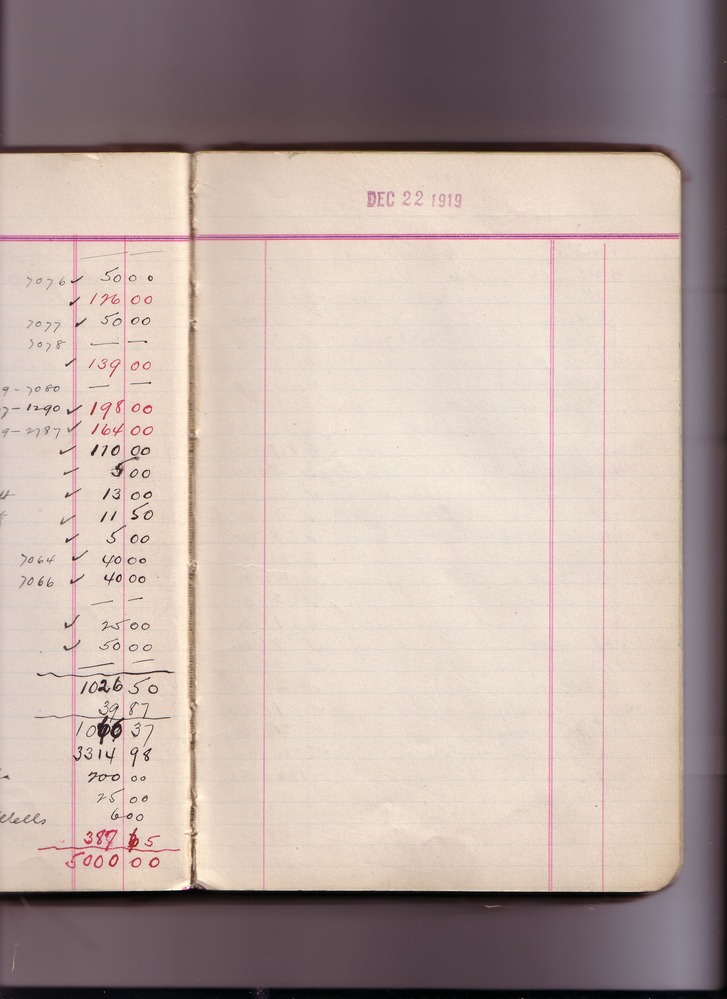 7076 ✓ 50 00
✓ 126 00
7077 ✓ 50 00
7078 — —
✓ 139 00
9-7080 — —
7-1290 ✓ 198 00
9-2787 ✓ 164 00
✓ 110 00
✓ 5 00
✓ 13 00
✓ 11 50
✓ 5 00
7064 ✓ 40 00
7066 ✓ 40 00
— —
✓ 25 00
✓ 50 00
— —
1026 50
39 87
1066 37
3314 98
200 00
25 00
6 00
387 65
5000 00
DEC 22 1919